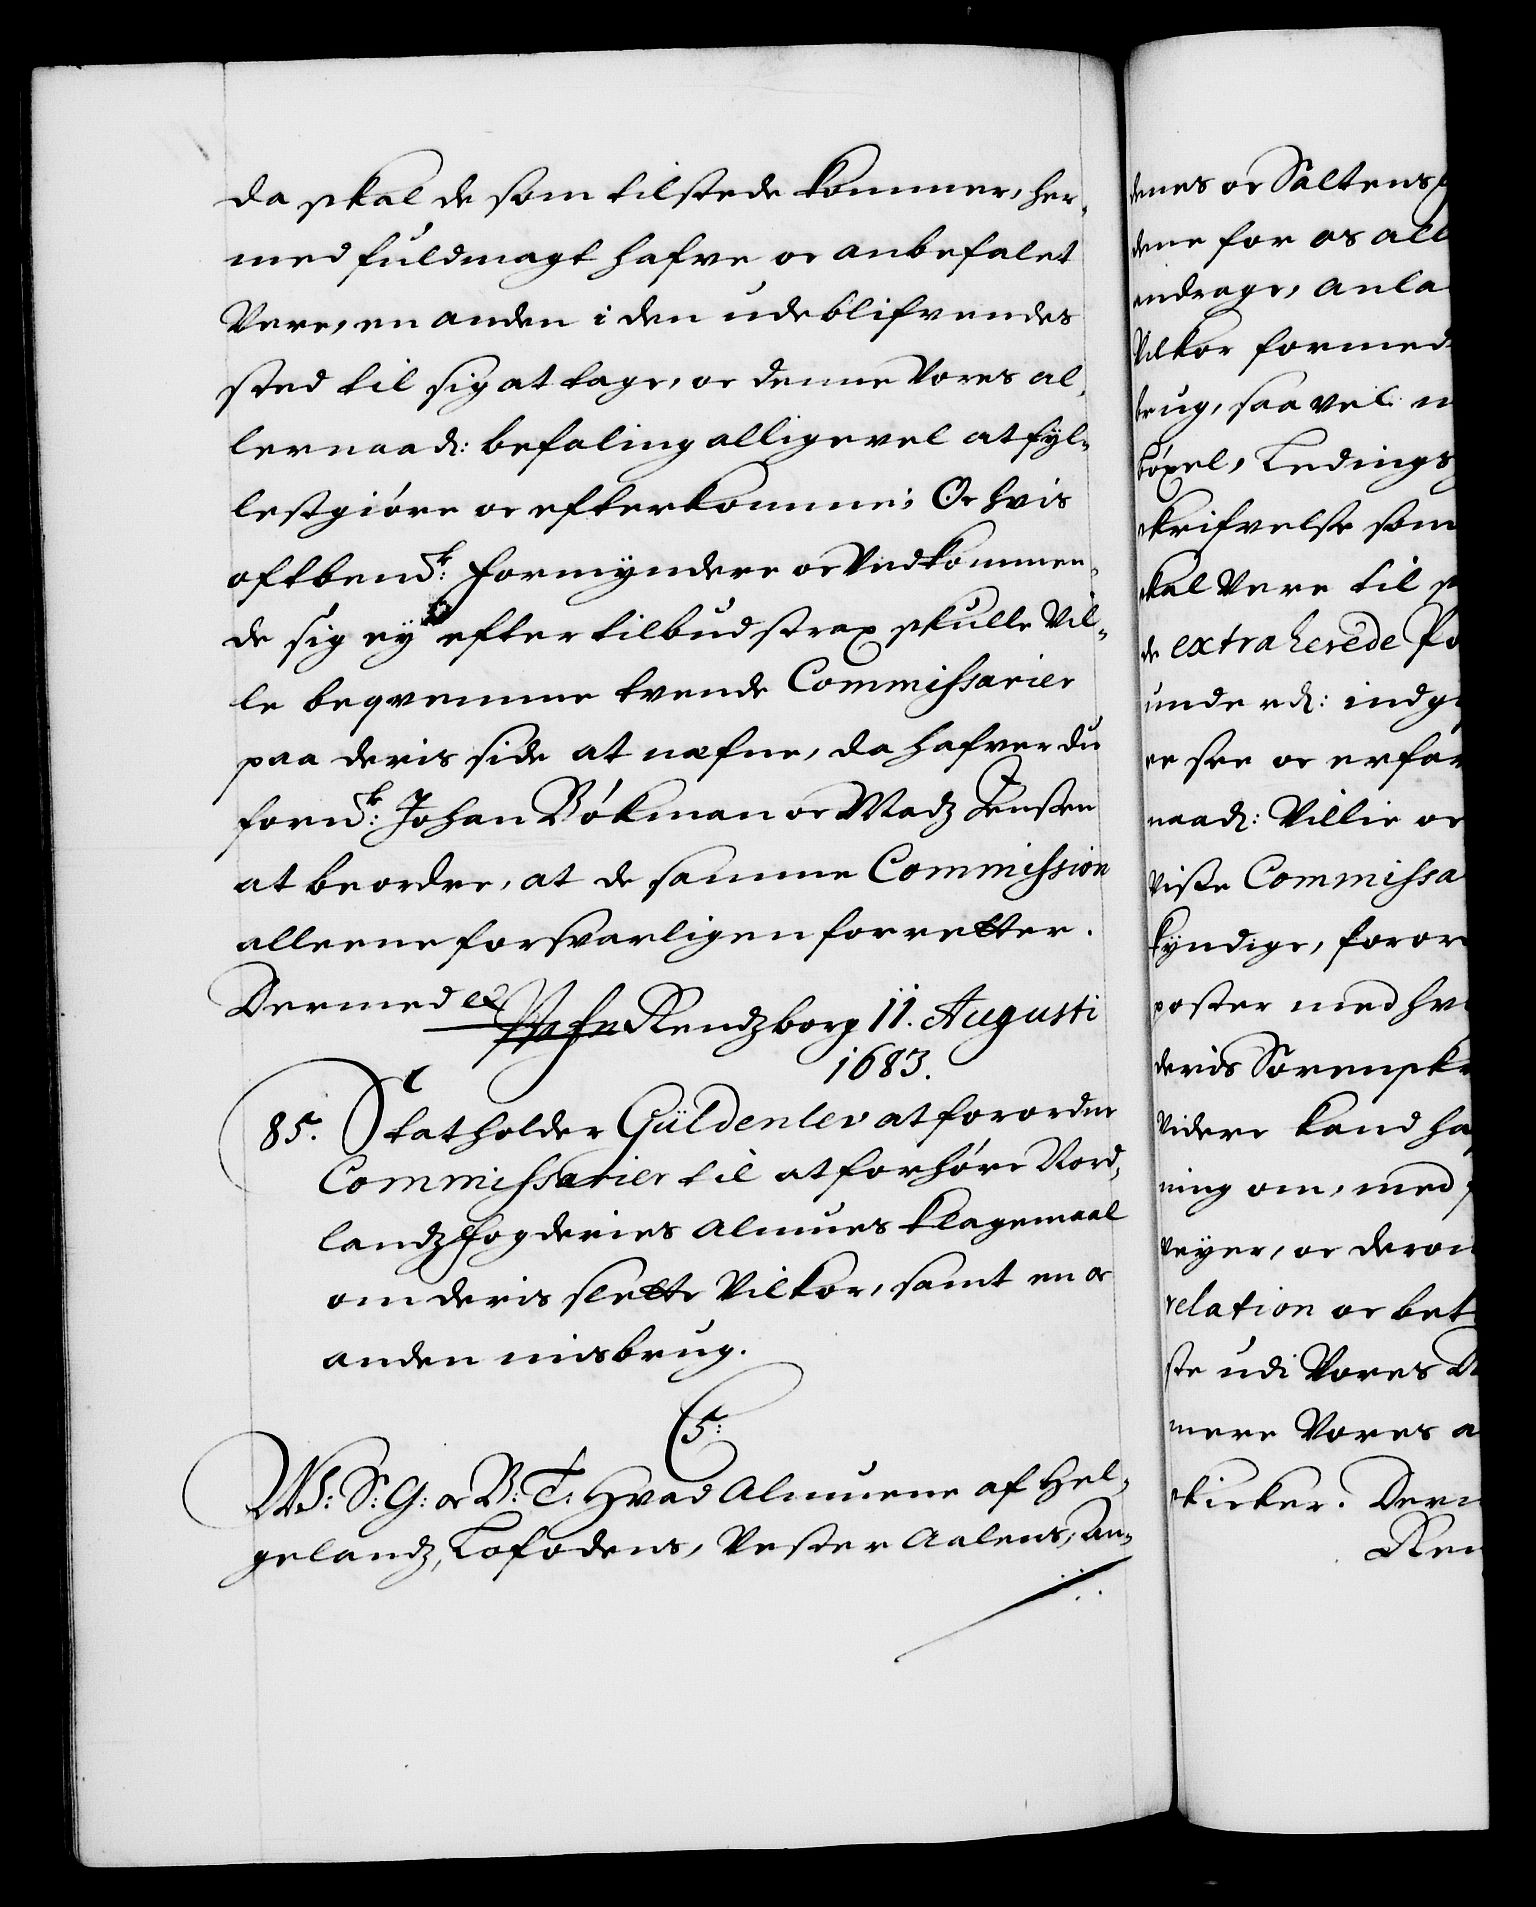 da skal de som tilstede kommer, her-
med fuldmagt hafve oc anbefalet
Vere, en anden i den udeblifvendes
sted til sig at tage, oc denne Vores al-
lernaad: befaling alligevel at fyl-
lestgióre oc efterkomme; Oc hvis
oftbend.t: formyndere oc Vedkommen-
de sig ey efter tilbud strax skulle Vil-
le beqvemme tvende Commissarier
paa deris side at nefne, da hafver du
fornd.t: Johan Bókman oc Madz Jensen
at beordre, at de samme Commission
alleene forsvarligen forretter.
Dermed etc
Rendzborg 11. Augusti
1683.
85. Statholder Güldenlev at forordne
Commissarier til at forhóre Nord-
landz fogderies Almues klagemaal
om deris slette Vilkor, samt en oc
anden misbrug.
C5:
W: S: G: oc B: T: Hvad Almuene af Hel-
gelandz, Lofodens, Vester Aalens, An-
denes oc Saltens
dene for os all
andrage, anla
Vilkor formed
brug, saavel
Ledings
skrifvelse som
skal Vere til
de extraherede Po
underd: indg
see oc erfar
naad: Villie oc
Viste Commissa
kyndige, foror
poster med hvi
deris Sorenskr
Videre kand ha
ning om, med
veyer, oc derom
relation oc bet
ste udi Vores
mere Vores a
skicker. Derm
Ren